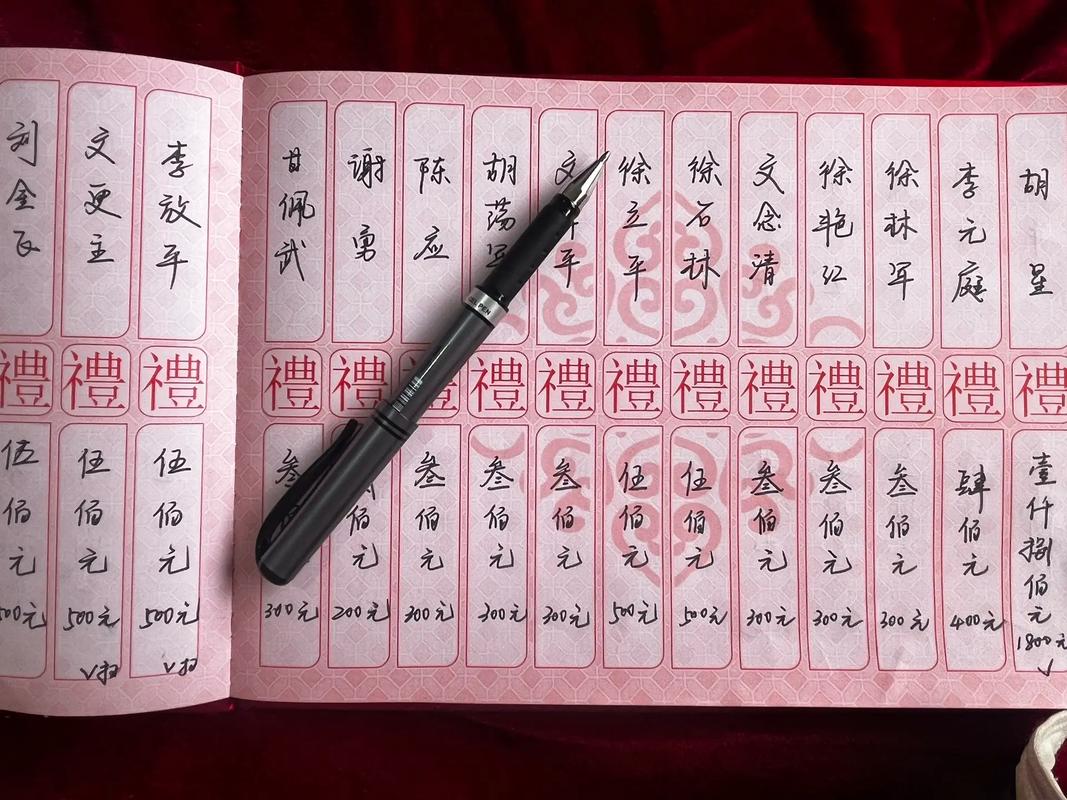 刘金
禮
伍佰元
500元
文更主
禮
伍佰元
500元
√扫
李放平
禮
伍佰元
500元
√扫
甘佩武
禮
叁
300元
谢勇
禮
佰元
200元
陈应
禮
叁佰元
300元
胡荡军
禮
叁佰元
300元
文平
禮
叁佰元
300元
徐立平
禮
伍佰元
500元
徐石林
禮
伍佰元
500元
文念清
禮
叁佰元
300元
徐艳红
禮
叁佰元
300元
徐林军
禮
叁佰元
300元
李元庭
禮
肆佰元
400元
胡星
禮
壹仟捌佰元
1800元
√
PEN